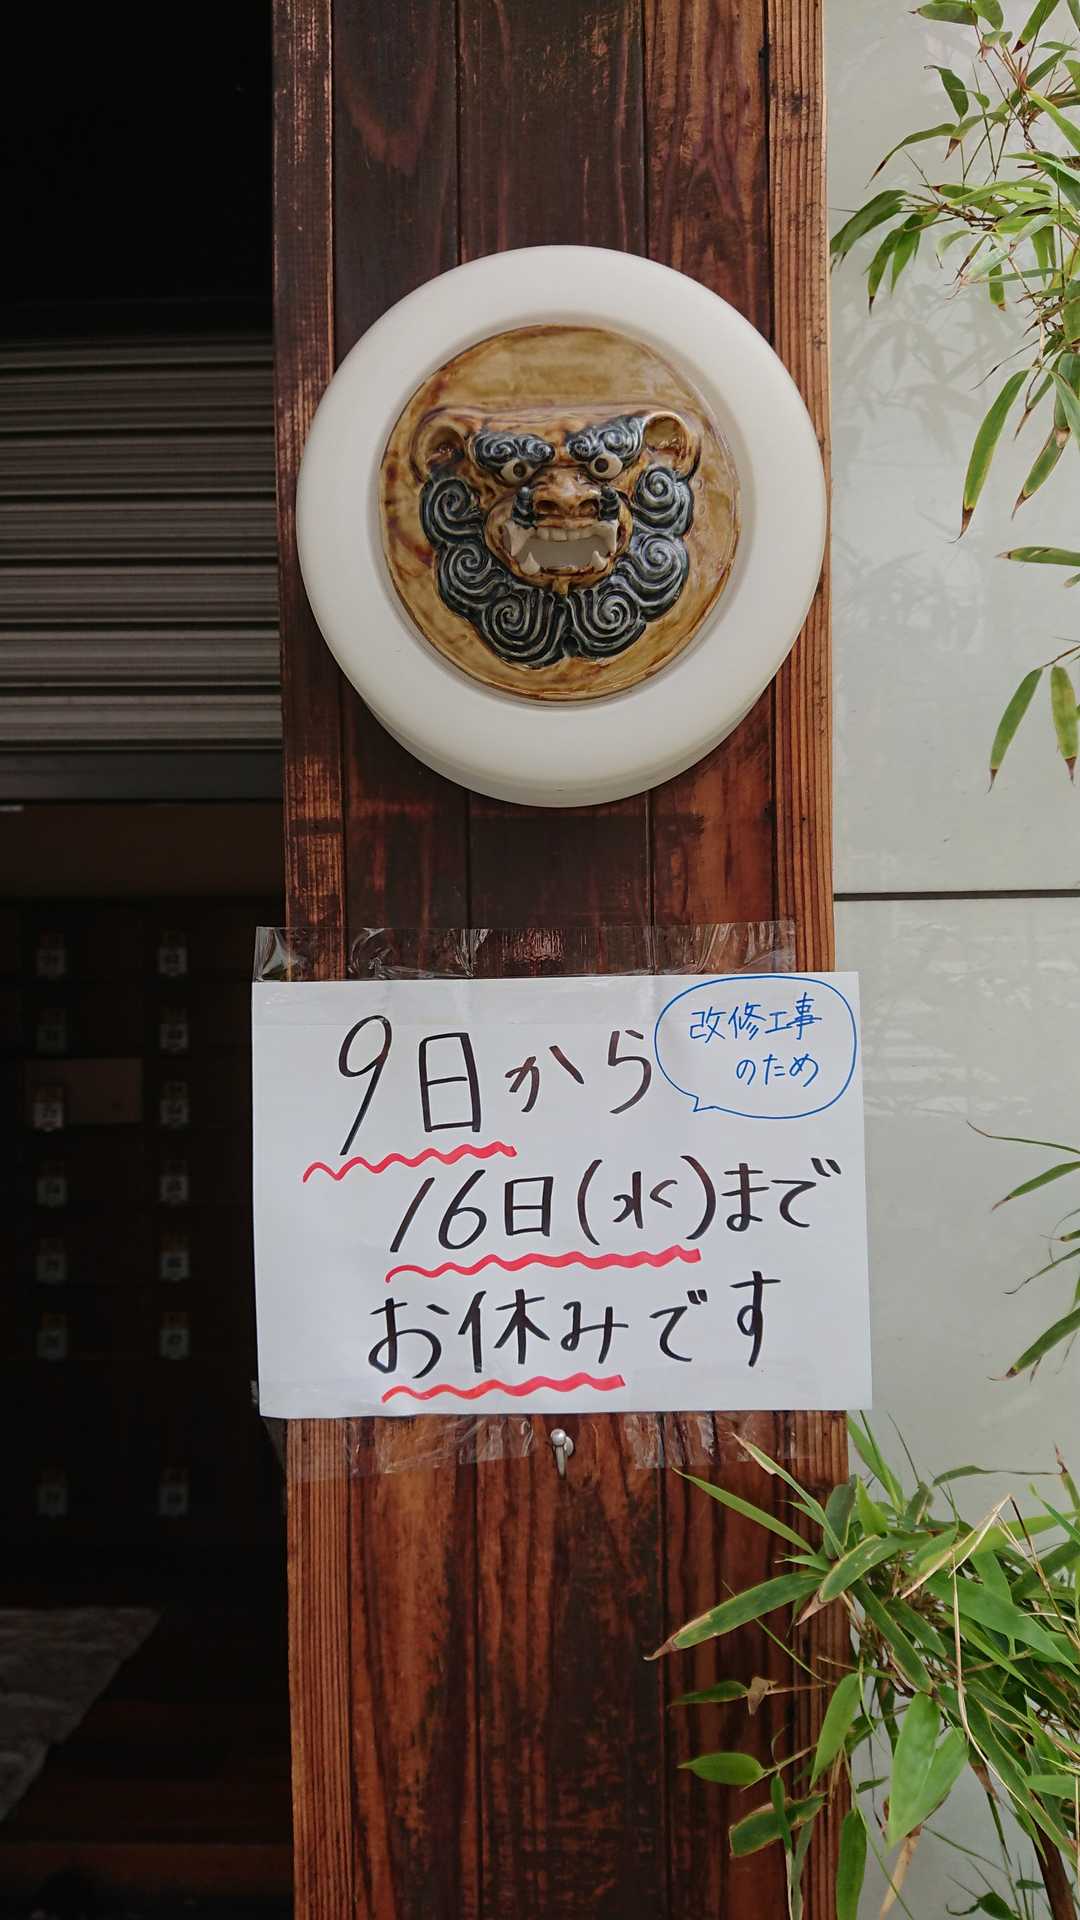 改修工事
のため
9日から
16日(水)まで
お休みです